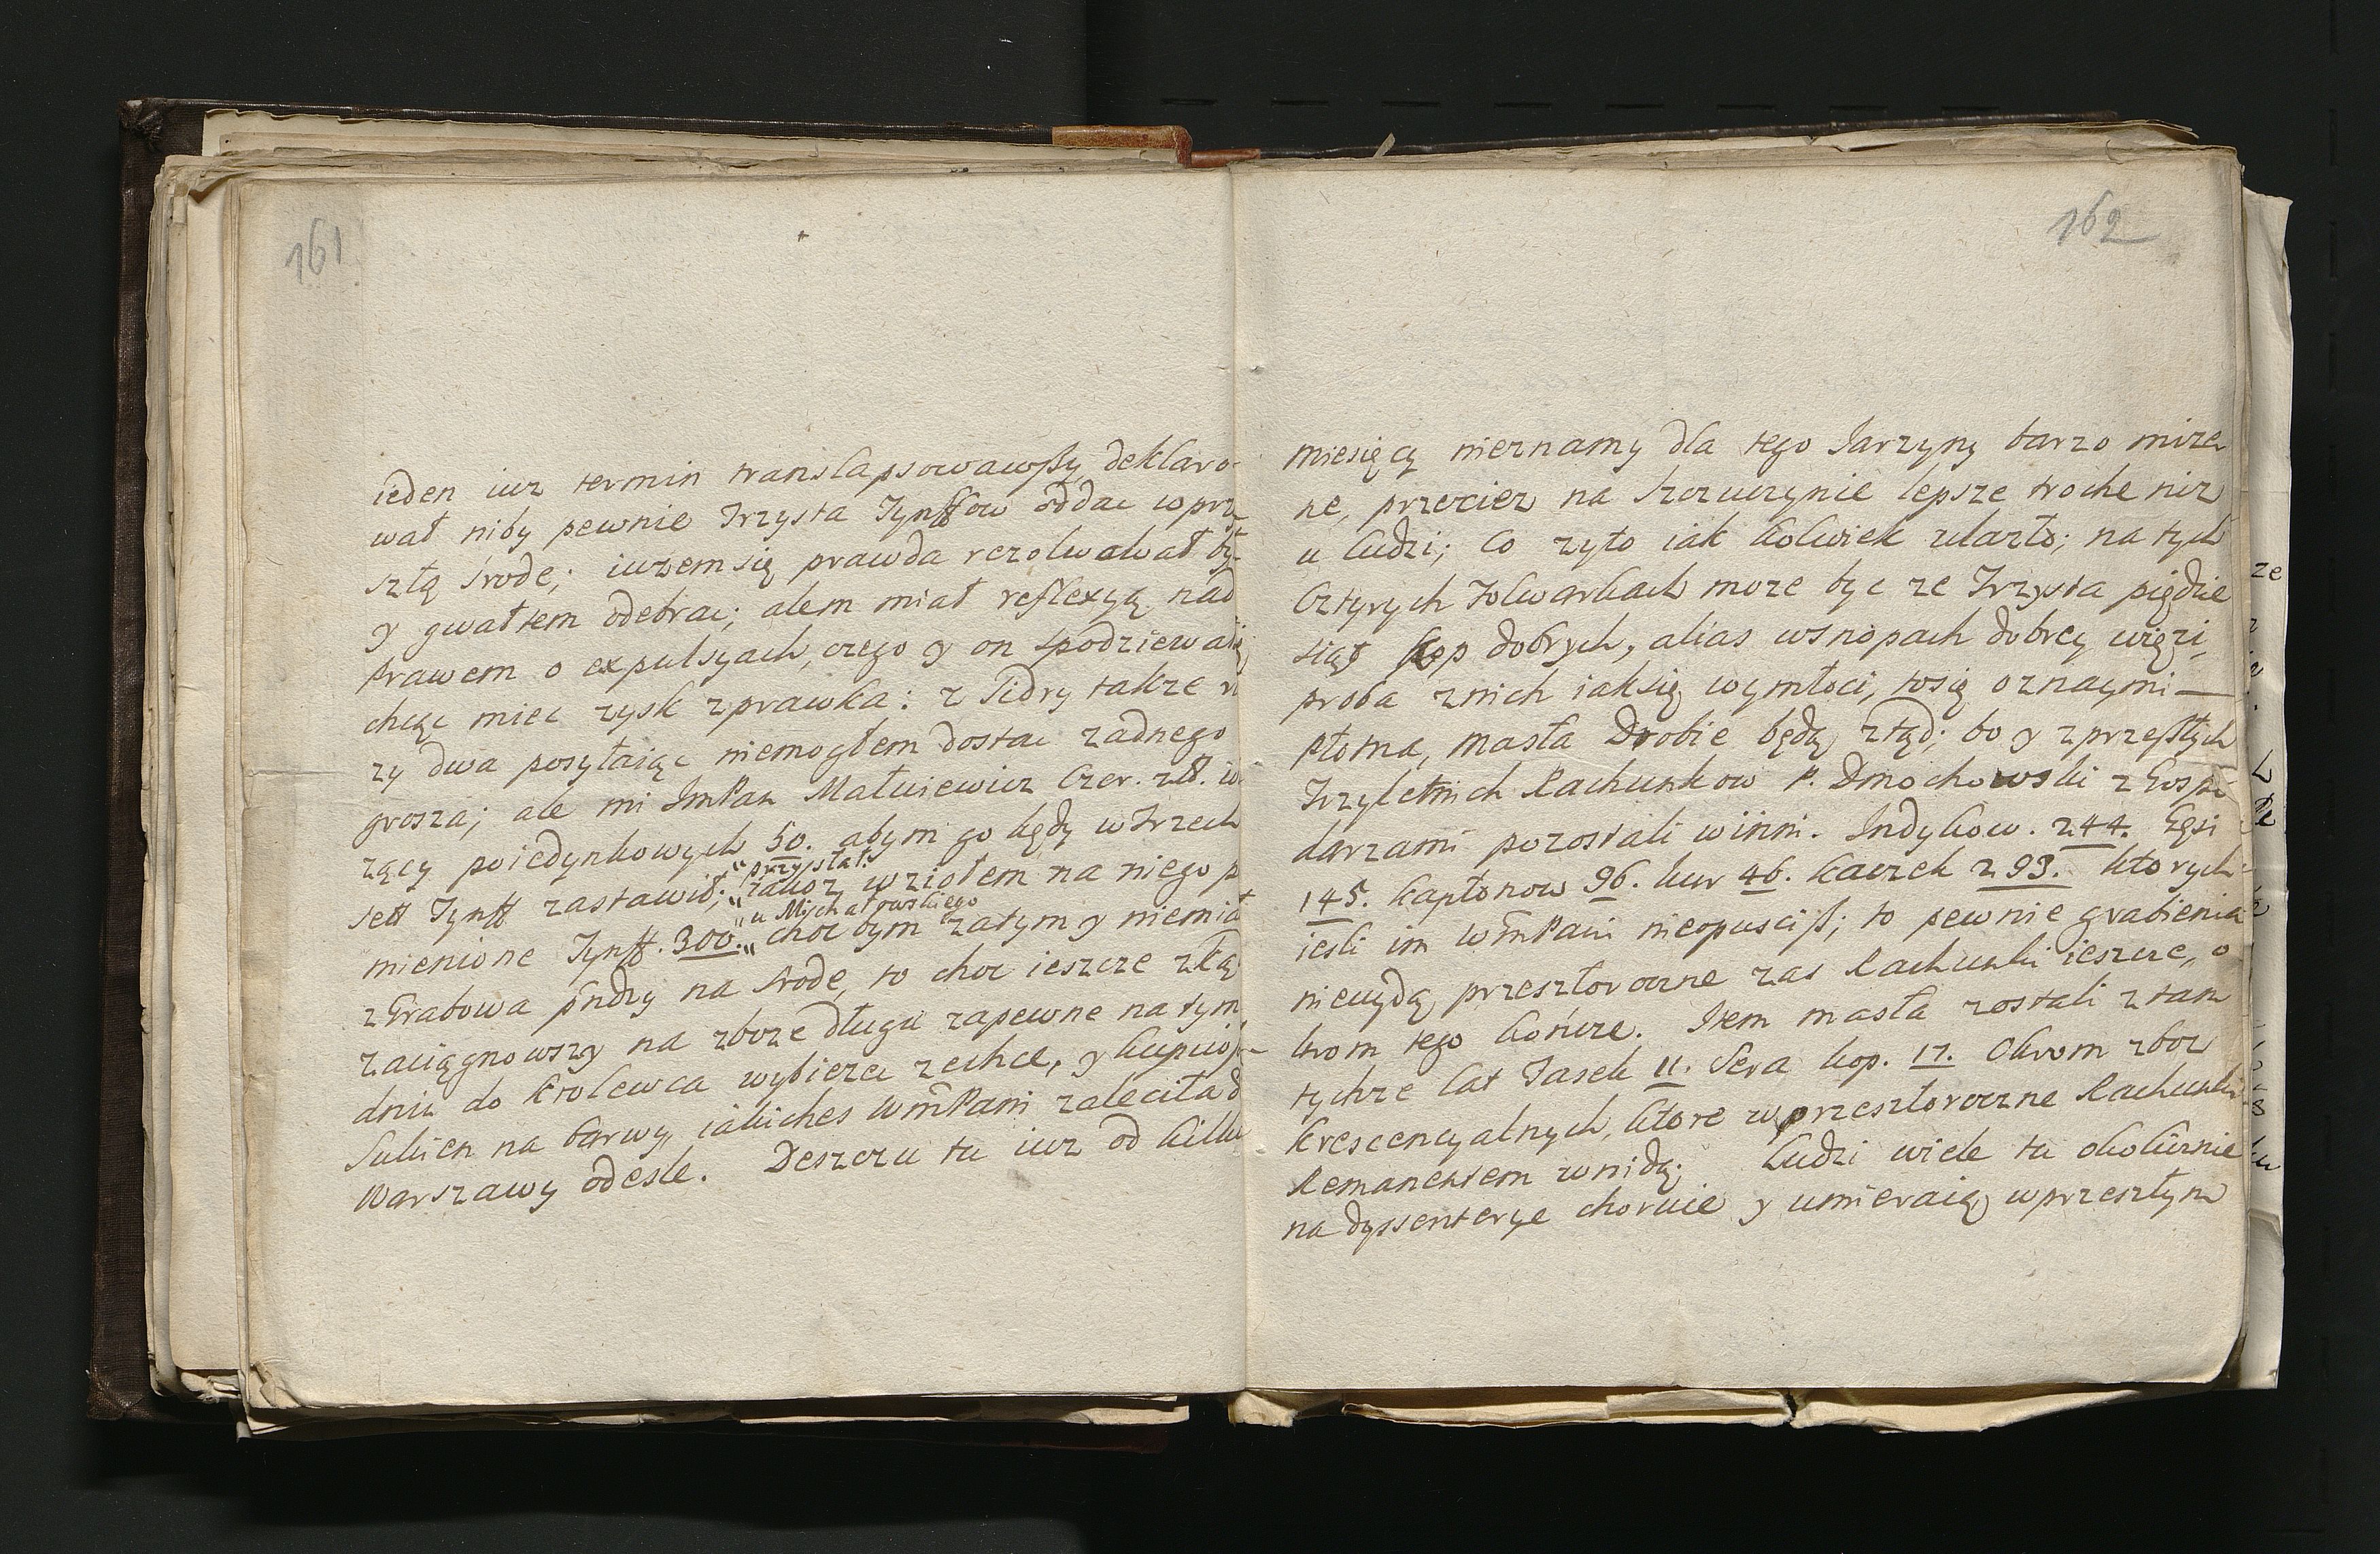 161
ieden iuz termin translapsowawszy deklaro-
wał niby pewnie Trzysta Tynffow oddac wprze-
szłą srode; iuzem się prawda rezolwował by-
y gwałtem odebrac; alem miał reflexyą nad
prawem o expulsyach, czego y on spodziewał się
chcąc miec zysk zprawka: z Sidry takze
zy dwa posyłaiąc niemogłem dostac zadnego
grosza; ale mi ImPan Matusiewicz Czer. zł.
zący poiedynkowych 50. abym go kędy wTrzech
przystał.
set Tynff zastawił; iakoz wziołem na niego
u Michałowskiego
mienione Tynff. 300. choc bym zatym y niemiał
zGrabowa pndzy na srode, to choc ieszcze
zaciągnowszy na zboze długu zapewne na tym
dniu do Krolewca wybierac zechce, y kupiwsz-
Sukien na barwy, iakiches WmPani zaleciła d
Warszawy odesle. Deszczu tu iuz od kilku
162
miesięcy nieznamy dla tego Jarzyny barzo mizer
ne, przeciez na Szczuczynie lepsze troche niz
u ludzi; Co zyto iak kolwiek ; na tych
Cztyrych Folwarkach moze byc ze Trzysta piędzie
siąt kop dobrych, alias wsnopach dobrey więzi,
proba znich iak się wymłoci, to się oznaymi —
płotna, masła Drobie będą ztąd; bo y zprzeszłych
Trzyletnich Rachunkow P. Dmochowski zGospo
darzami pozostali winni. Indykow. 244. Gęsi
145. Kapłonow 96. kur 46. kaczek 293. ktorych
iesli im WmPani nieopuscisz; to pewnie grabienia
nieuydą, przeszłoroczne zas Rachunki ieszcze, o
krom tego koncze. Item masła zostali ztam
tychze lat Fasek 11. Sera kop. 17. Okrom zboz
krescencyalnych, ktore wprzeszłoroczne Rachunki
Remanentem wnidą; Ludzi wiele tu okolicznie
na dyssenterye choruie y umieraią, wprzeszłym